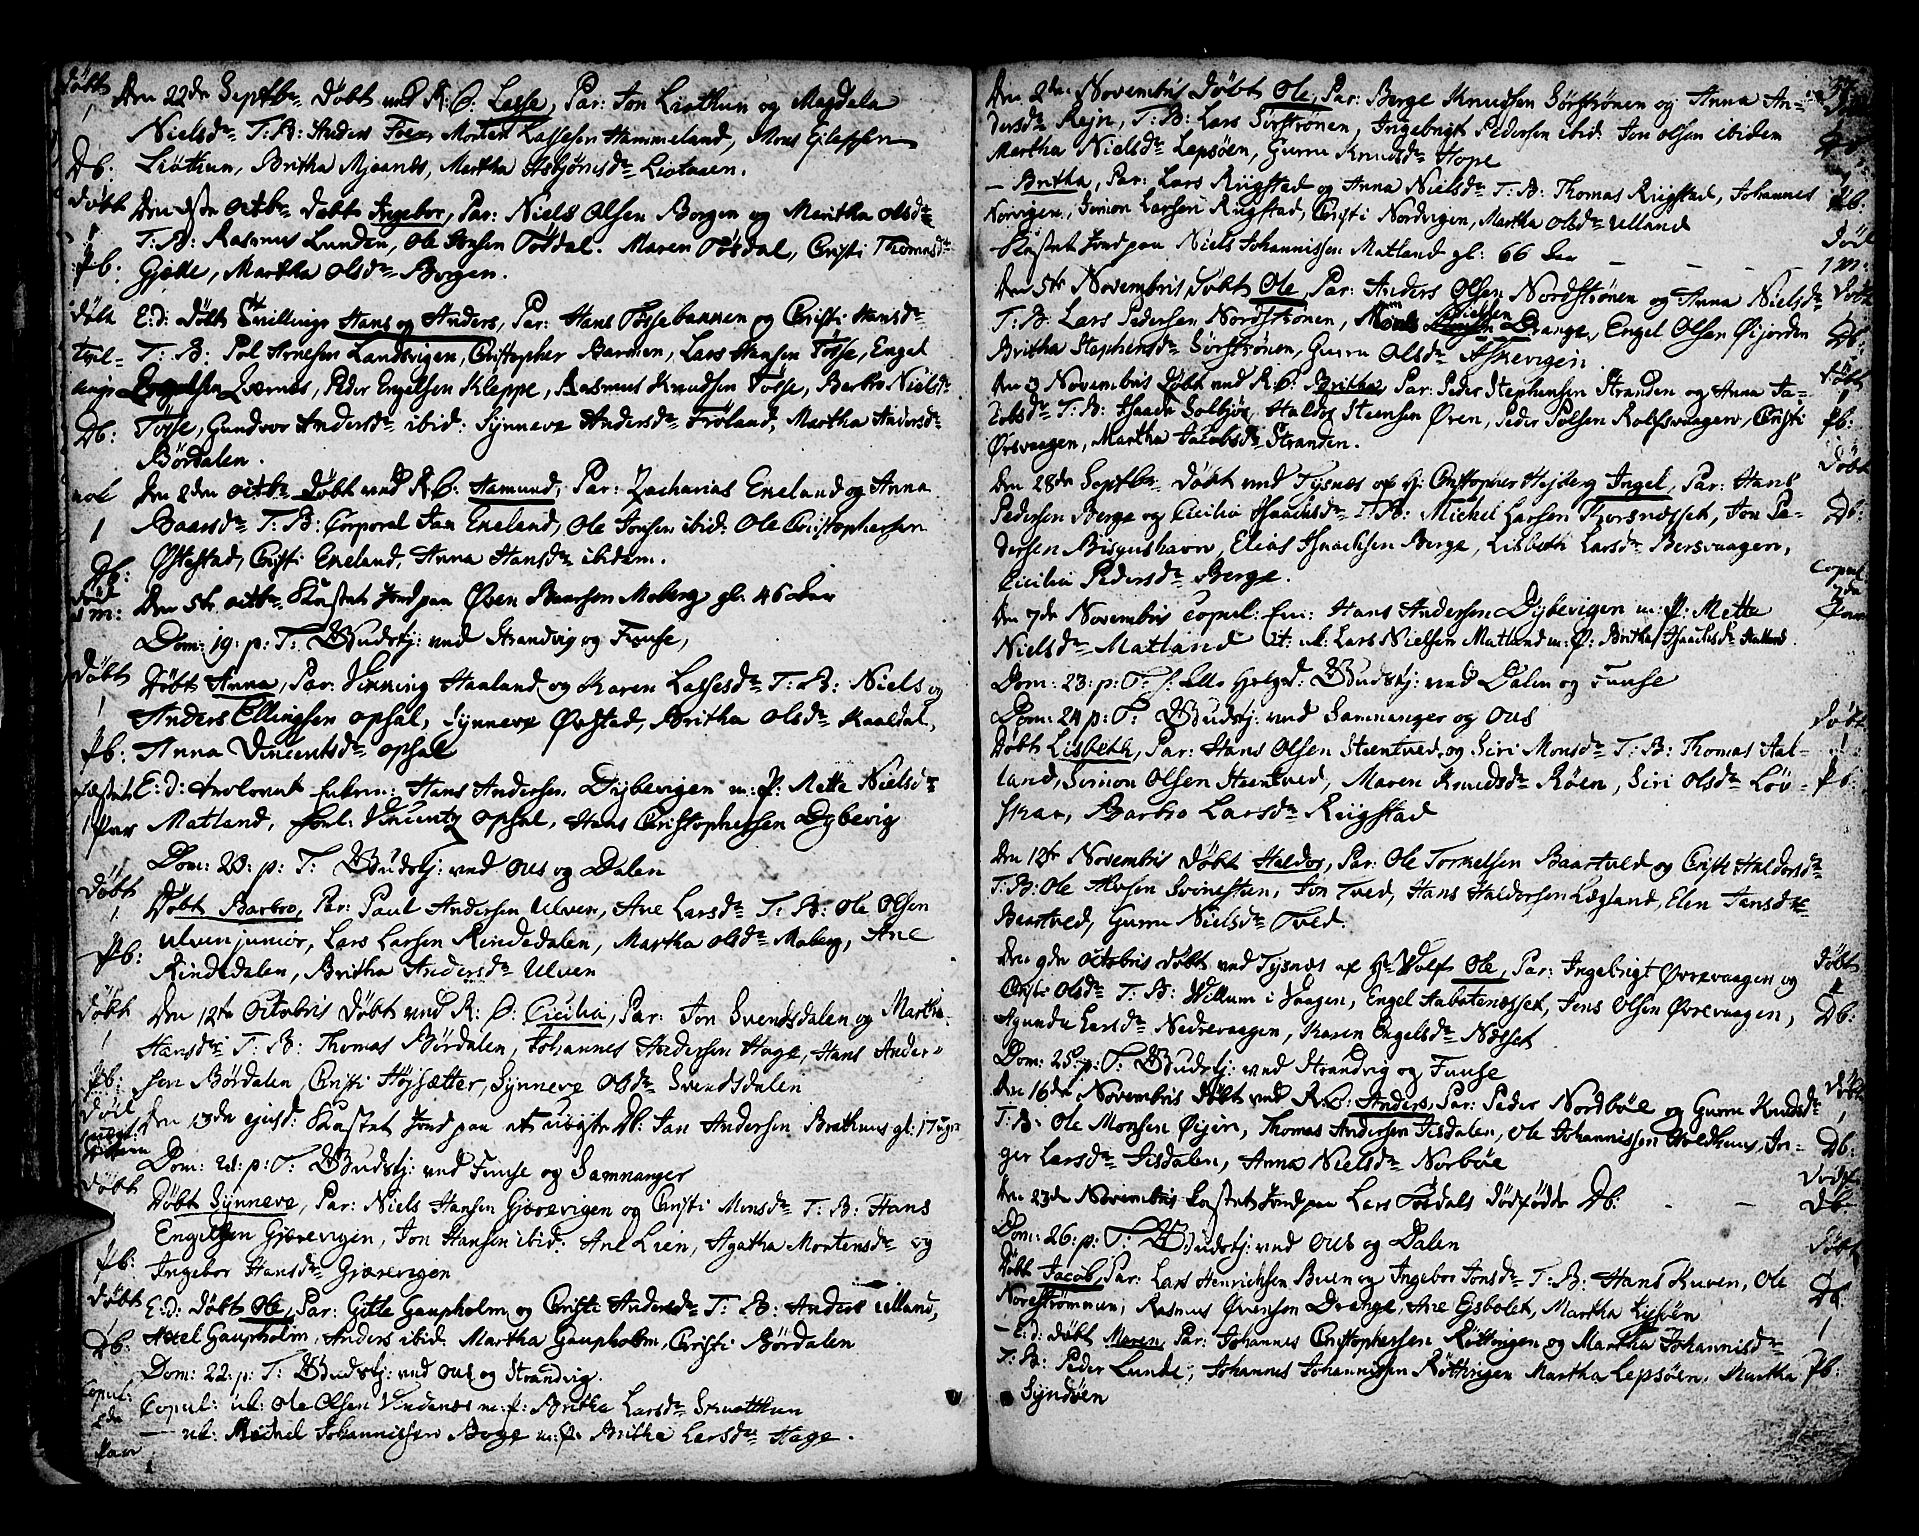 Døbt
1
Db:
Den 22de Septbr. Døbt ved R. C: Lasse, Par: Jon Liøthun og Magdela
Nielsdr. T: B: Anders Foer, Morten Lassesen Hammeland, Mons
Liøthun, Britha Mjaanes, Martha Asbjørnsdr. Liøtaaen.
Døbt
1
Pb:
Den 1ste Octbr. Døbt Ingebor, Par: Niels Olsen Borgen og Maritha Olsdr.
T: B: Rasmus Lunden, Ole Tøsdal. Maren Tøsdal, Christi Thomasdr.
Gjelle, Martha Olsdr. Borgen.
Døbt
Tvil-
Db:
E: d: Døbt Tvillinge Hans og Anders, Par: Hans Tøssebannen og Christi Hansdr.
T: B: Pol Arnesen Landvigen, Christopher Barmen, Lars Hansen Tøsse, Engel
Lærnes, Peder Engelsen Kleppe, Rasmus Knudsen Tøsse, Barbro Nielsdr.
Tøsse, Gundvor Andersdr. ibid: Synneve Andersdr. Frøland, Martha Andersdr.
Børdalen.
1
Db:
Den 2den Octbr. Døbt ved R. C: Hamund, Par: Zacharias Eneland og Anna
Baarsdr. T: B: Corporal Jan Eneland, Ole Jonsen ibid: Ole Christophersen
Østestad, Christi Eneland, Anna Hansdr. ibidem.
Død
1 m:
Den 5te Octbr. Kastet Jord paa Øven Baarsen Moberg gl: 46 Aar
Dom: 19: p: T: Gudstj: ved Strandvig og Fuuse,
Døbt
1
Pb:
Døbt Anna, Par: Henning Haaland og Karen Lassesdr. T: B: Niels og
Anders Ellingsen Opsal, Synneve Øvstad, Britha Olsdr. Kaaldal,
Anna Vincentsdr. Opsal
1 Par
E: d: Trolovet Hans Andersen Dybevigen m: P: Mette Nielsdr.
Matland, Vincentz Opsal, Hans Christophersen Dybevig
Dom: 20: p: T: Gudstj: ved Ous og Dalen
Døbt
1
Pb:
Døbt Barbro, Par: Paul Andersen Ulven, Ane Larsdr. T: B: Ole Olsen
Ulven junior, Lars Larsen Rindedalen, Martha Olsdr. Moberg, Ane
Rindedalen, Britha Andersdr. Ulven
Døbt
1
Pb:
Den 12te Octobris Døbt ved R: C: Cicilia, Par: Jon Svendsdalen og Martha
Hansdr. T: B: Thomas Børdalen, Johannes Andersen Hage, Hans Ander-
sen Børdalen, Christi Høysætter, Synneve Olsdr. Svendsdalen
Død
Den 13de ejusd: Kastet Jord paa et Db: Jan Andersen Brathuus gl: 17 uger
Dom: 21: p: T: Gudstj: ved Fuuse og Samnanger
Døbt
Pb:
Døbt Synneve, Par: Niels Hansen Gjørevigen og Christi Monsdr. T: B: Hans
Engelsen Gjørevigen, Jon Hansen ibid: Ane Lien, Agatha Mortensdr. og
Ingebor Hansdr. Gjørevigen
Døbt
1
Db:
E: d: Døbt Ole, Par: Gitle Gaupholm og Christi Andersdr. T: B: Anders Ulland,
Axel Gaupholm, Anders ibid: Martha Gaupholm, Christi Børdalen
Dom: 22: p: T: Gudstj: ved Ous og Strandvig.
Copul:
2de
Paar
Copul: Ole Olsen Vindenes m: p: Britha Larsdr. Smatthun
— Michel Johannissen Boge m: p: Britha Larsdr. Hage.
Den 2den Novembris Døbt Ole, Par: Berge Knudsen Sørstrønen og Anna An-
dersdr. Rejn, T: B: Lars Sørstrønen, Ingebrigt Pedersen ibid: Jon Olsen ibidem
Martha Nielsdr. Lepsøen, Gurru Knudsdr. Hope
— Britha, Par: Lars Riigstad og Anna Nielsdr. T: B: Thomas Riigstad, Johannes
Norvigen, Simon Larsen Riigstad, Christi Nordvigen, Martha Olsdr. Ulland
Pb.
— Kastet Jord paa Niels Johannissen Matland gl: 66 Aar
1 m:
Den 5te Novembris Døbt Ole, Par: Anders Olsen Nordstrønen og Anna Nielsdr.
T: B: Lars Pedersen Nordstrønen, Nielsen Drange, Engel Olsen Øijorden
Britha Stephensdr. Sørstrønen, Gurru Olsdr. Askevigen.
Døbt
Db:
Den 9 Novembris Døbt ved R. C: Britha, Par: Peder Stephensen Stranden og Anna Ja-
cobsdr. T: B: Isaach Solbjør, Haldor Steensen Øren, Peder Polsen Rolfsvaagen, Christi
Ørsvaagen, Martha Jacobsdr. Stranden.
Døbt
1
Pb:
Den 28de Septbr. Døbt ved Tysnæs af H: Christopher Hejberg Ingel, Par: Hans
Pedersen Berge og Cicilia Isaachsdr. T: B: Michel Larsen Thorsnæsset, Jon Pe-
dersen Bispushavn, Elias Isaachsen Berge, Lisbeth Larsdr. Bersvaagen,
Cicilia Pedersdr. Berge.
Døbt
Db:
Den 7de Novembris Copul: Hans Andersen Dybevigen m: P: Mette
Nielsdr. Matland it: Lars Nielsen Matland m: P: Britha Isaachsdr. Hatland.
Copul:
2de
Paar
Dom: 23: p: T: Gudstj: ved Dalen og Fuuse
Dom: 24 p: T: Gudstj: ved Samnanger og Ous
Døbt Lisbeth, Par: Hans Olsen Steentved og Siri Monsdr. T: B: Thomas Aal-
land, Simon Olsen Steentved, Maren Knudsdr. Røen, Siri Olsdr. Løv-
skar, Barbro Larsdr. Riigstad
Døbt
1
Pb:
Den 12te Novembris Døbt Haldor, Par: Ole Torkelsen Baartved og Haldorsdr.
T: B: Ole Svinesteen, Jon Tved, Hans Haldorsen Lægland, Elen Jansdr.
Baartved, Gurru Nielsdr. Tved.
Den 9de Octobris Døbt ved Tysnæs af Hr. Wolf Ole, Par: Ingebrigt Øvrevaagen og
Christi Olsdr. T: B: Willum i Vaagen, Engel Aabotenæsset, Jens Olsen Øvrevaagen,
Agunda Larsdr. Nedrevaagen, Karen Engelsdr. Nøtset
Døbt
1
Db:
Dom: 25: p: T: Gudstj: ved Strandvig og Fuuse
Den 16de Novembris Døbt ved R. C: Anders, Par: Peder Nordbøe og Gurru Knudsdr.
T: B: Ole Monsen Øijen, Thomas Andersen Iisdalen, Ole Johannissen Holdhuus, In-
ger Larsdr. Iisdalen, Anna Nielsdr. Norbøe
Døbt
1
Db:
Den 23de Novembris Kastet Jord paa Lars Tøsdals dødfødde Db:
Dødf.
Db:
Dom: 26: p: T: Gudstj: ved Ous og Dalen
Døbt Jacob, Par: Lars Henrichsen Buen og Ingebor Jonsdr. T: B: Hans Kuven, Ole
Norstrømmen, Rasmus Øvensen Drange, Ane Ejsbolet, Martha Lissøen
Døbt
Db:
— E: d: Døbt Maren, Par: Johannes Christophersen Røttingen og Martha Johannisdr.
T: B: Peder Lunde, Johannes Johannissen Røttingen Martha Lepsøen, Martha
Syndøen
1
Pb: